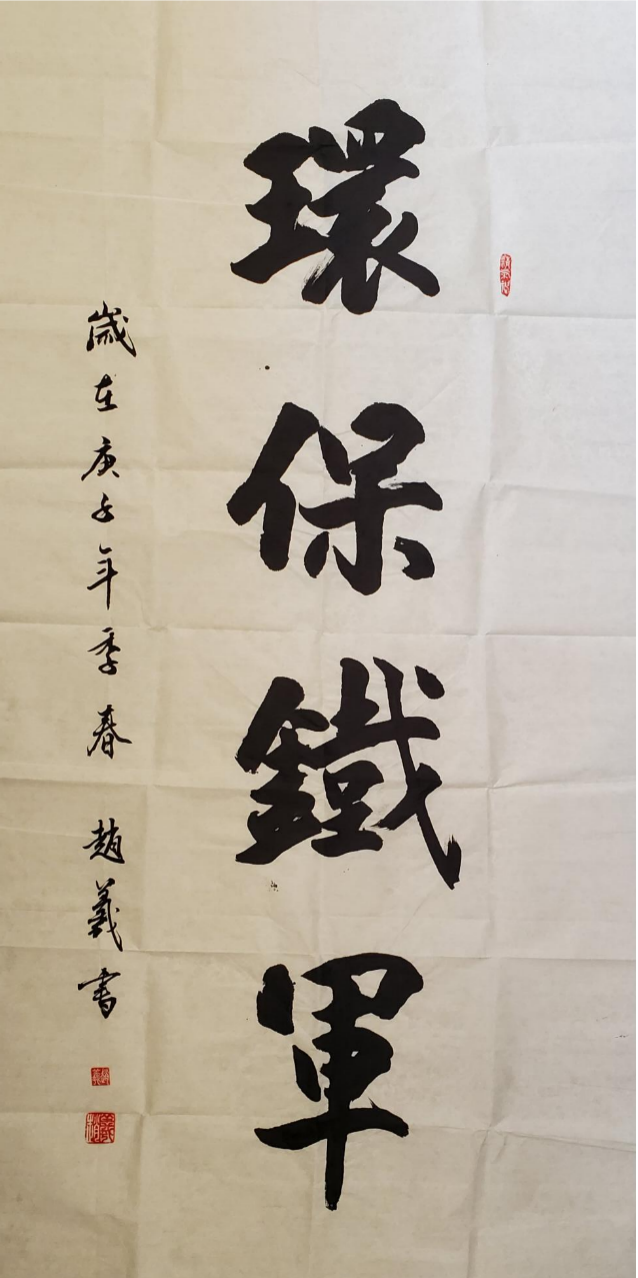 環保鐵軍
歲在庚子年季春 趙義書